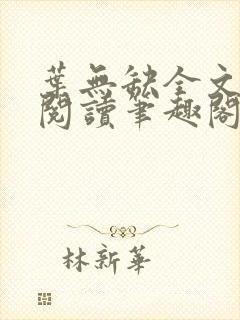 葉無缺全文
閱讀筆趣閣
林新華